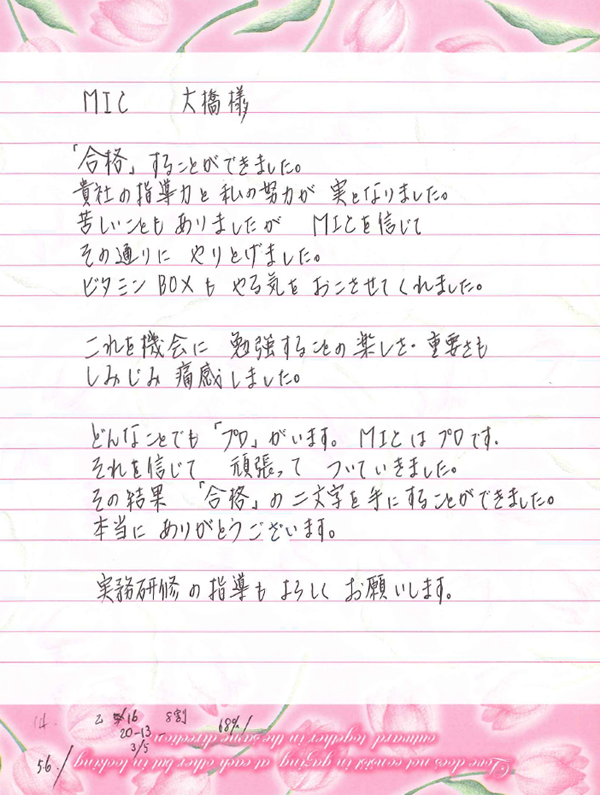 MIC 大橋様
「合格」することができました。
貴社の指導力と私の努力が 実となりました。
苦しいこともありましたが MICを信じて
その通りに やりとげました。
ビタミンBOXも やる気を おこさせてくれました。
これを機会に 勉強することの楽しさ・重要さも
しみじみ 痛感しました。
どんなことでも「プロ」がいます。MICはプロです.
それを信じて 頑張って ついていきました。
その結果 「合格」の二文字を手にすることができました。
本当に ありがとうございます。
実務研修の指導も よろしく お願いします。
14. 16 8割 68%/
20-13
3/5
56./
Love does not consist in gazing at each other but in looking
outward together in the same direction